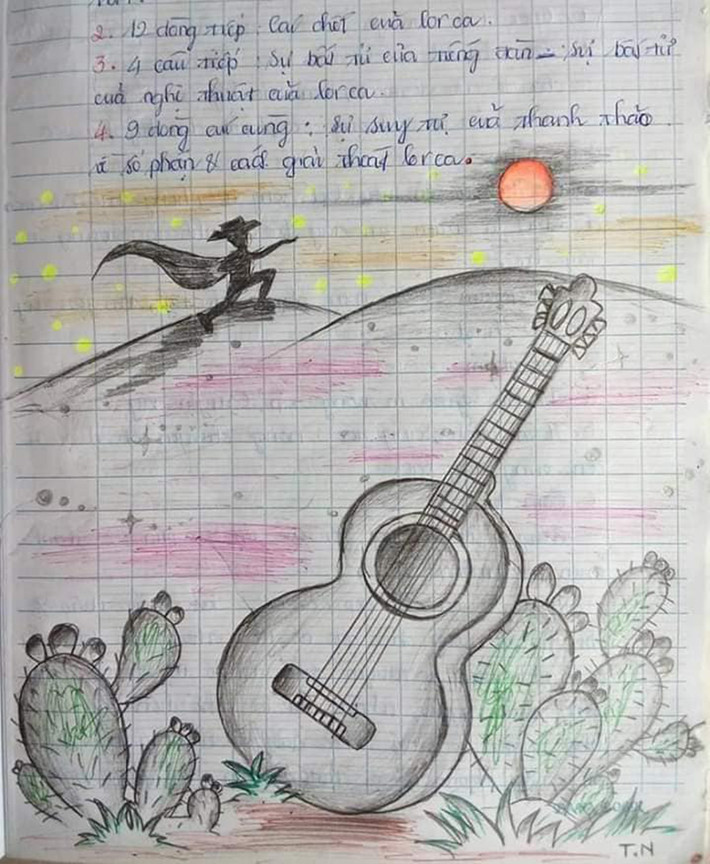 2. 12 dòng tiếp: Cái chết của Lorca.
3. 4 câu tiếp: Sự bất tử của tiếng đàn - sự bất tử
của nghệ thuật của Lorca.
4. 9 dòng cuối cùng: Sự suy tư của Thanh Thảo
về số phận & cách giải thoát Lorca.
T.N